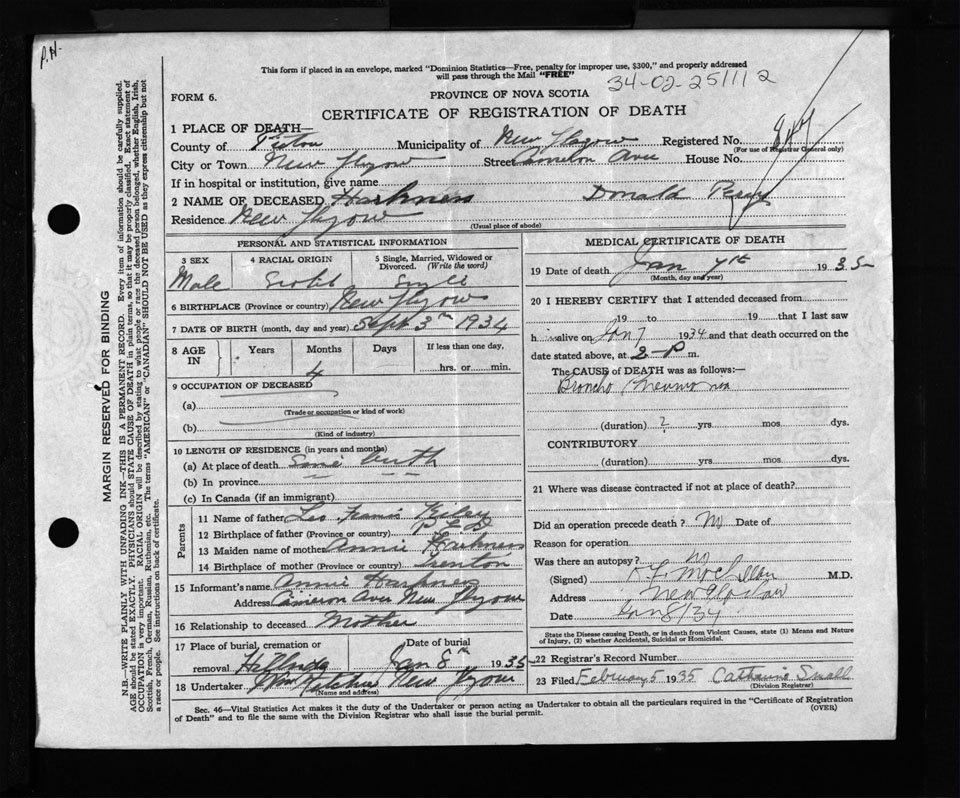 P.H.
This form if placed in an envelope, marked "Dominion Statistics—Free, penalty for improper use, $300," and properly addressed
will pass through the Mail "FREE"
34-02-251112
PROVINCE OF NOVA SCOTIA
FORM 6.
CERTIFICATE OF REGISTRATION OF DEATH
1 PLACE OF DEATH—
County of Pictou Municipality of New Glasgow Registered No.
(For use of Registrar General only)
City or Town New Glasgow Street Cameron Ave House No.
If in hospital or institution, give name
2 NAME OF DECEASED Harkness Donald
Residence New Glasgow
(Usual place of abode)
PERSONAL AND STATISTICAL INFORMATION
3 SEX 4 RACIAL ORIGIN 5 Single, Married, Widowed or Divorced. (Write the word)
Male Scotch Single
6 BIRTHPLACE (Province or country) New Glasgow
7 DATE OF BIRTH (month, day and year) Sept 3rd 1934
8 AGE IN Years Months Days If less than one day,
4 hrs. or min.
9 OCCUPATION OF DECEASED
(a)
(Trade or occupation or kind of work)
(b)
(Kind of industry)
10 LENGTH OF RESIDENCE (in years and months)
(a) At place of death Since Birth
(b) In province
(c) In Canada (if an immigrant)
Parents
11 Name of father Leo Francis
12 Birthplace of father (Province or country)
13 Maiden name of mother Annie Harkness
14 Birthplace of mother (Province or country) Trenton
15 Informant's name Annie Harkness
Address Cameron Ave New Glasgow
16 Relationship to deceased Mother
17 Place of burial, cremation or removal Date of burial
Jan 8th 1935
18 Undertaker New Glasgow
(Name and address)
MEDICAL CERTIFICATE OF DEATH
19 Date of death Jan 7th 1935
(Month, day and year)
20 I HEREBY CERTIFY that I attended deceased from
19 to 19 that I last saw
h alive on Jan 7 1934 and that death occurred on the
date stated above, at 2 P m.
The CAUSE of DEATH was as follows:
Broncho Pneumonia
(duration) ? yrs. mos. dys.
CONTRIBUTORY
(duration) yrs. mos. dys.
21 Where was disease contracted if not at place of death?
Did an operation precede death? No Date of
Reason for operation
Was there an autopsy? no
(Signed) M.D.
Address New Glasgow
Date Jan 8/34
State the Disease causing Death, or in death from Violent Causes, state (1) Means and Nature
of Injury, (2) whether Accidental, Suicidal or Homicidal.
22 Registrar's Record Number
23 Filed February 5 1935 Catherine Small
(Division Registrar)
Sec. 46—Vital Statistics Act makes it the duty of the Undertaker or person acting as Undertaker to obtain all the particulars required in the "Certificate of Registration
of Death" and to file the same with the Division Registrar who shall issue the burial permit.
(OVER)
MARGIN RESERVED FOR BINDING
N.B.—WRITE PLAINLY WITH UNFADING INK—THIS IS A PERMANENT RECORD. Every item of information should be carefully supplied.
AGE should be stated EXACTLY. PHYSICIANS should STATE CAUSE OF DEATH in plain terms, so that it may be properly classified. Exact statement of
OCCUPATION is very important. RACIAL ORIGIN will be described by stating to what people or race the deceased person belonged, whether English, Irish,
Scottish, French, German, Russian, Ruthenian, etc. The terms "AMERICAN" or "CANADIAN" SHOULD NOT BE USED as they express citizenship but not
a race or people. See instructions on back of certificate.